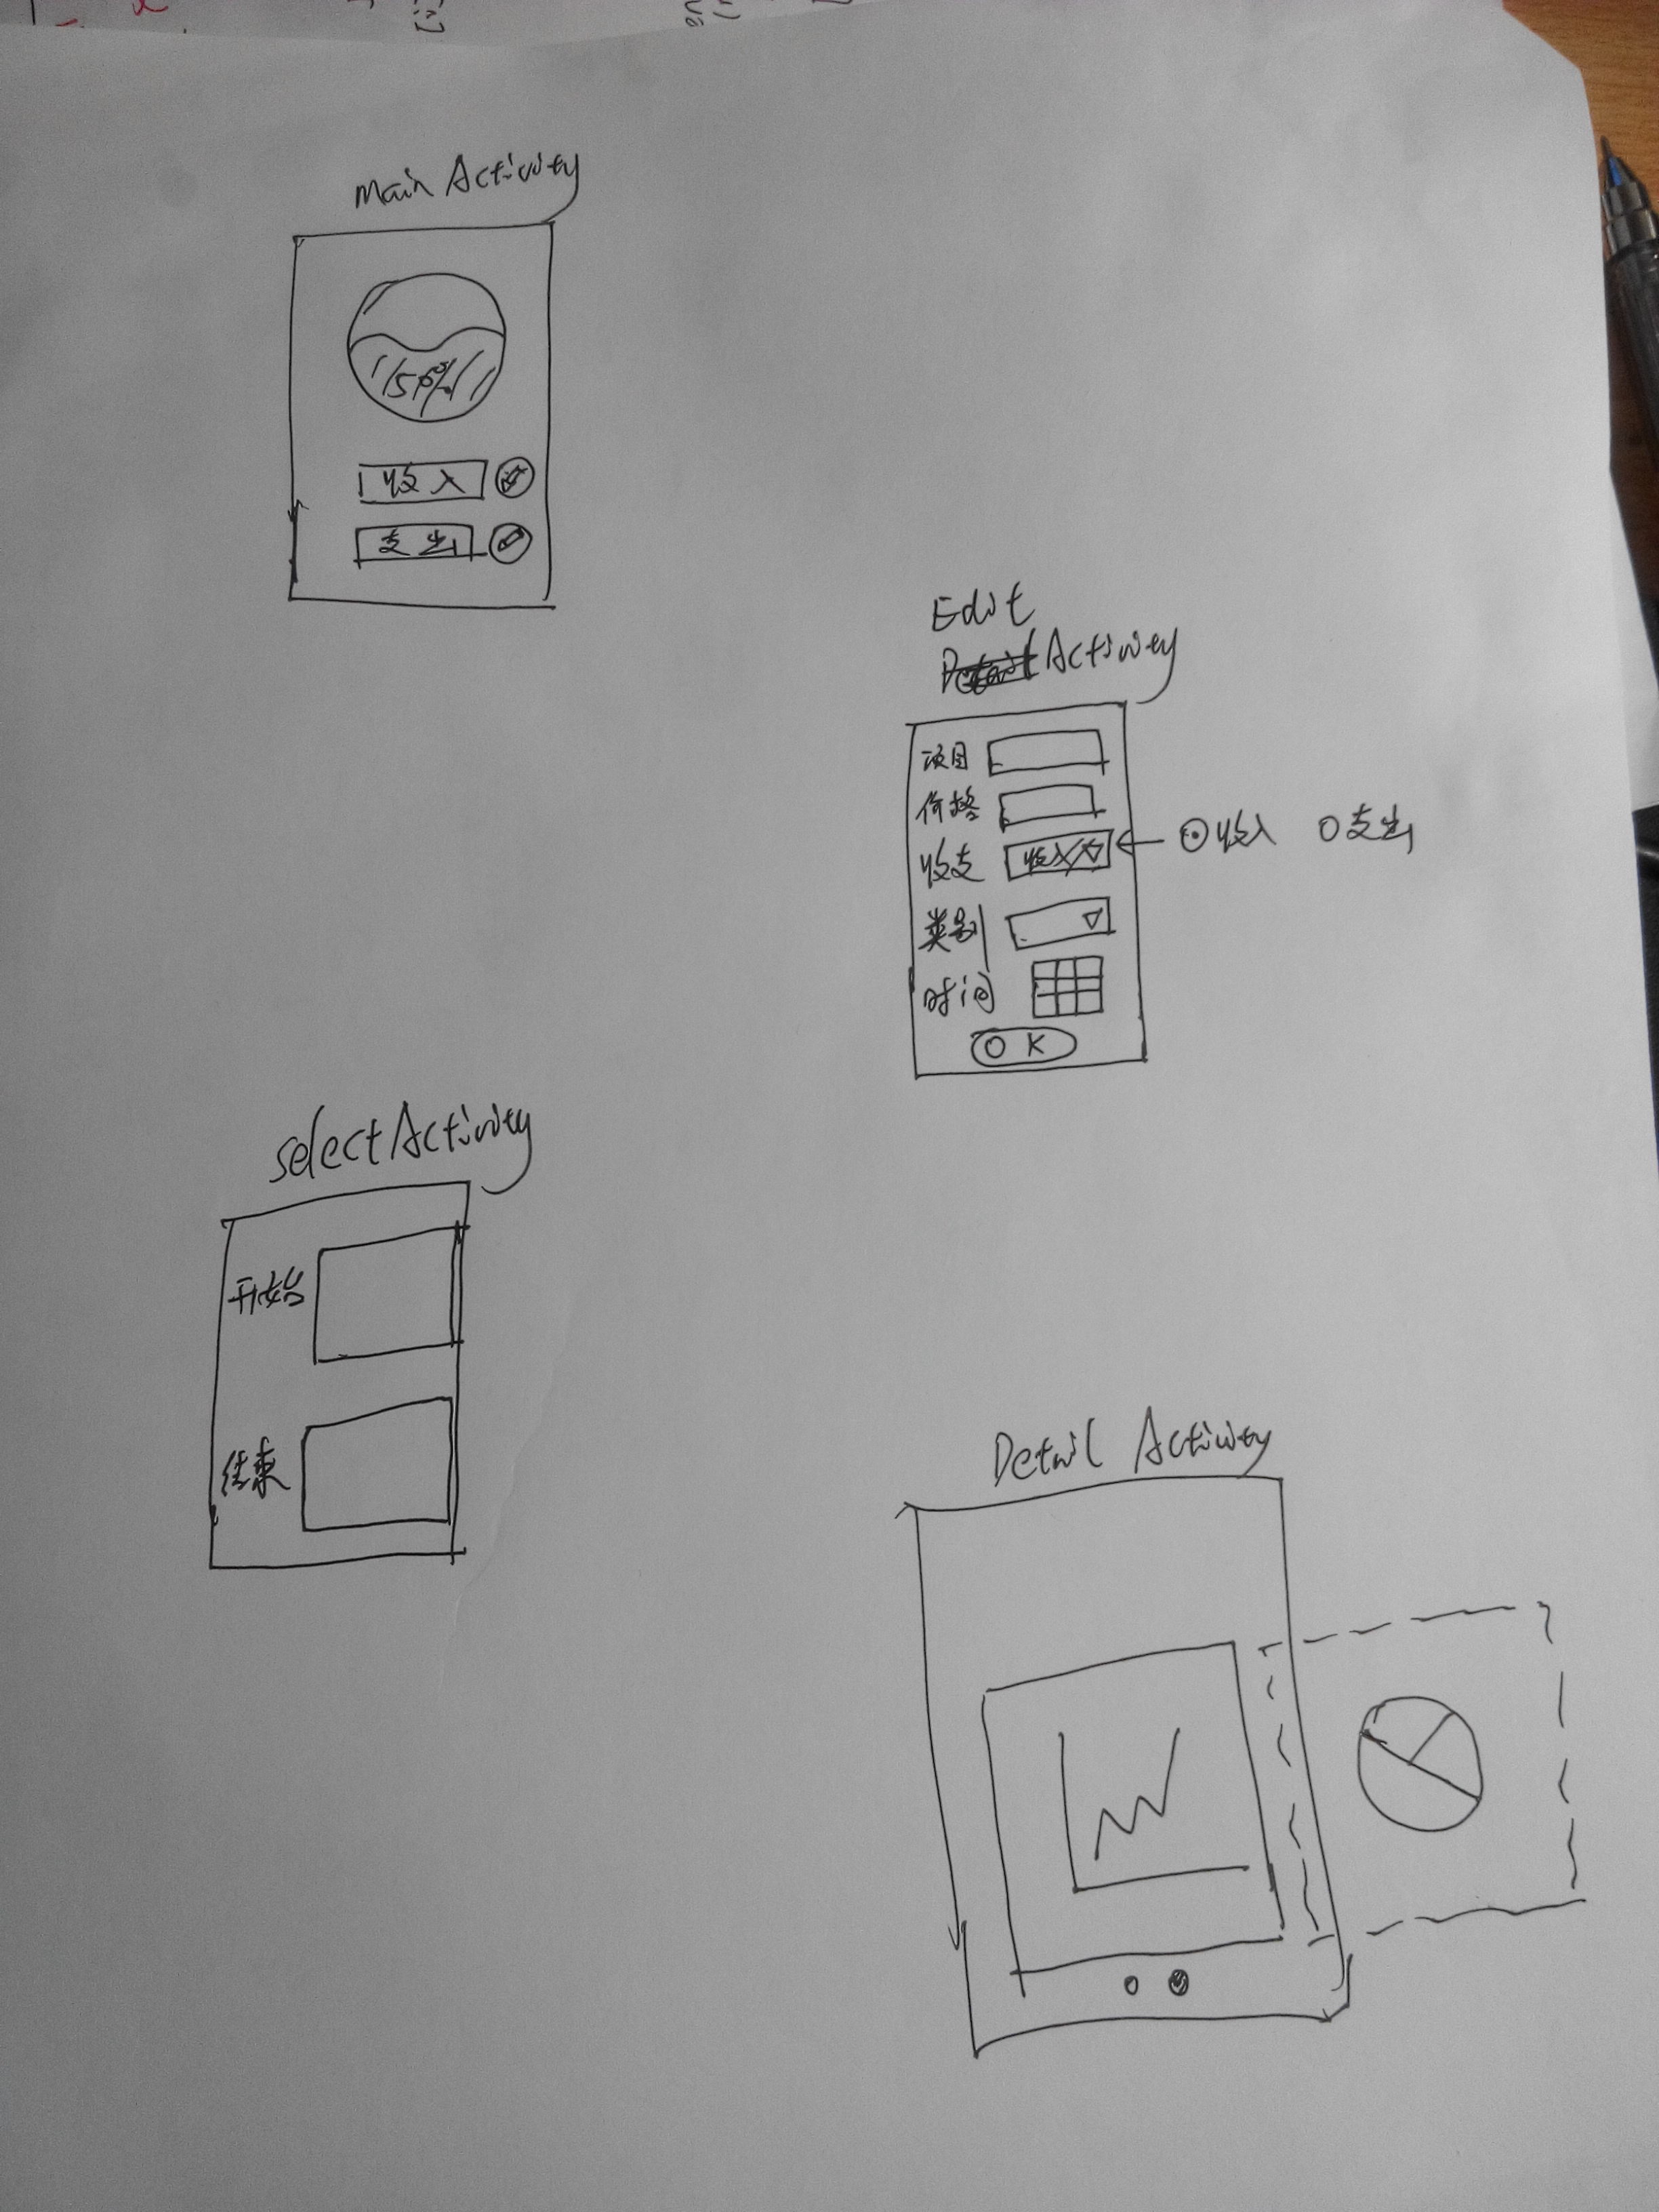 Main Activity
50%
收入
支出
Edit
Activity
项目
价格
收支 收入/ ⊙收入 ○支出
类别
时间
OK
select Activity
开始
结束
Detail Activity